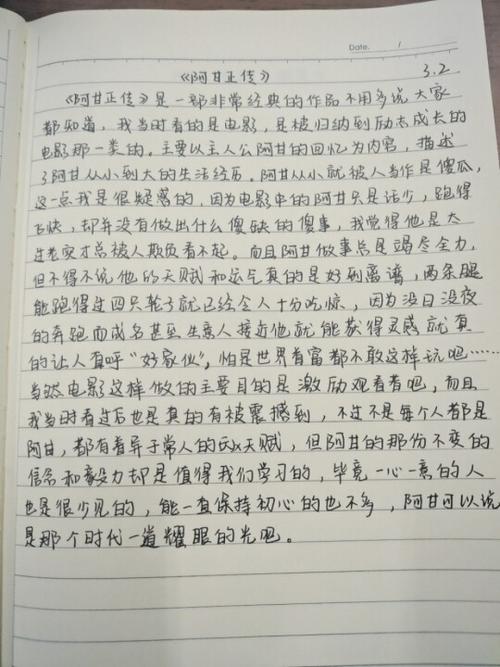 Date.    /
《阿甘正传》    3.2
《阿甘正传》是一部非常经典的作品不用多说大家
都知道，我当时看的是电影，是被归纳到励志成长的
电影那一类的。主要以主人公阿甘的回忆为内容，描述
了阿甘从小到大的生活经历。阿甘从小就被人当作是傻瓜，
这一点我是很疑惑的，因为电影中的阿甘只是话少，跑得
飞快，却并没有做出什么傻缺的傻事，我觉得他是太
过老实才总被人欺负看不起。而且阿甘做事总是竭尽全力，
但不得不说他的天赋和运气真的是好到离谱，两条腿
能跑得过四只轮子就已经令人十分吃惊，因为没日没夜
的奔跑而成名甚至生意人接近他就能获得灵感就真
的让人直呼“好家伙”，怕是世界首富都不敢这样玩吧……
当然电影这样做的主要目的是激励观看者吧，而且
我当时看过后也是真的有被震撼到，不过不是每个人都是
阿甘，都有着异于常人的天赋，但阿甘的那份不变的
信念和毅力却是值得我们学习的，毕竟一心一意的人
也是很少见的，能一直保持初心的也不多，阿甘可以说
是那个时代一道耀眼的光吧。